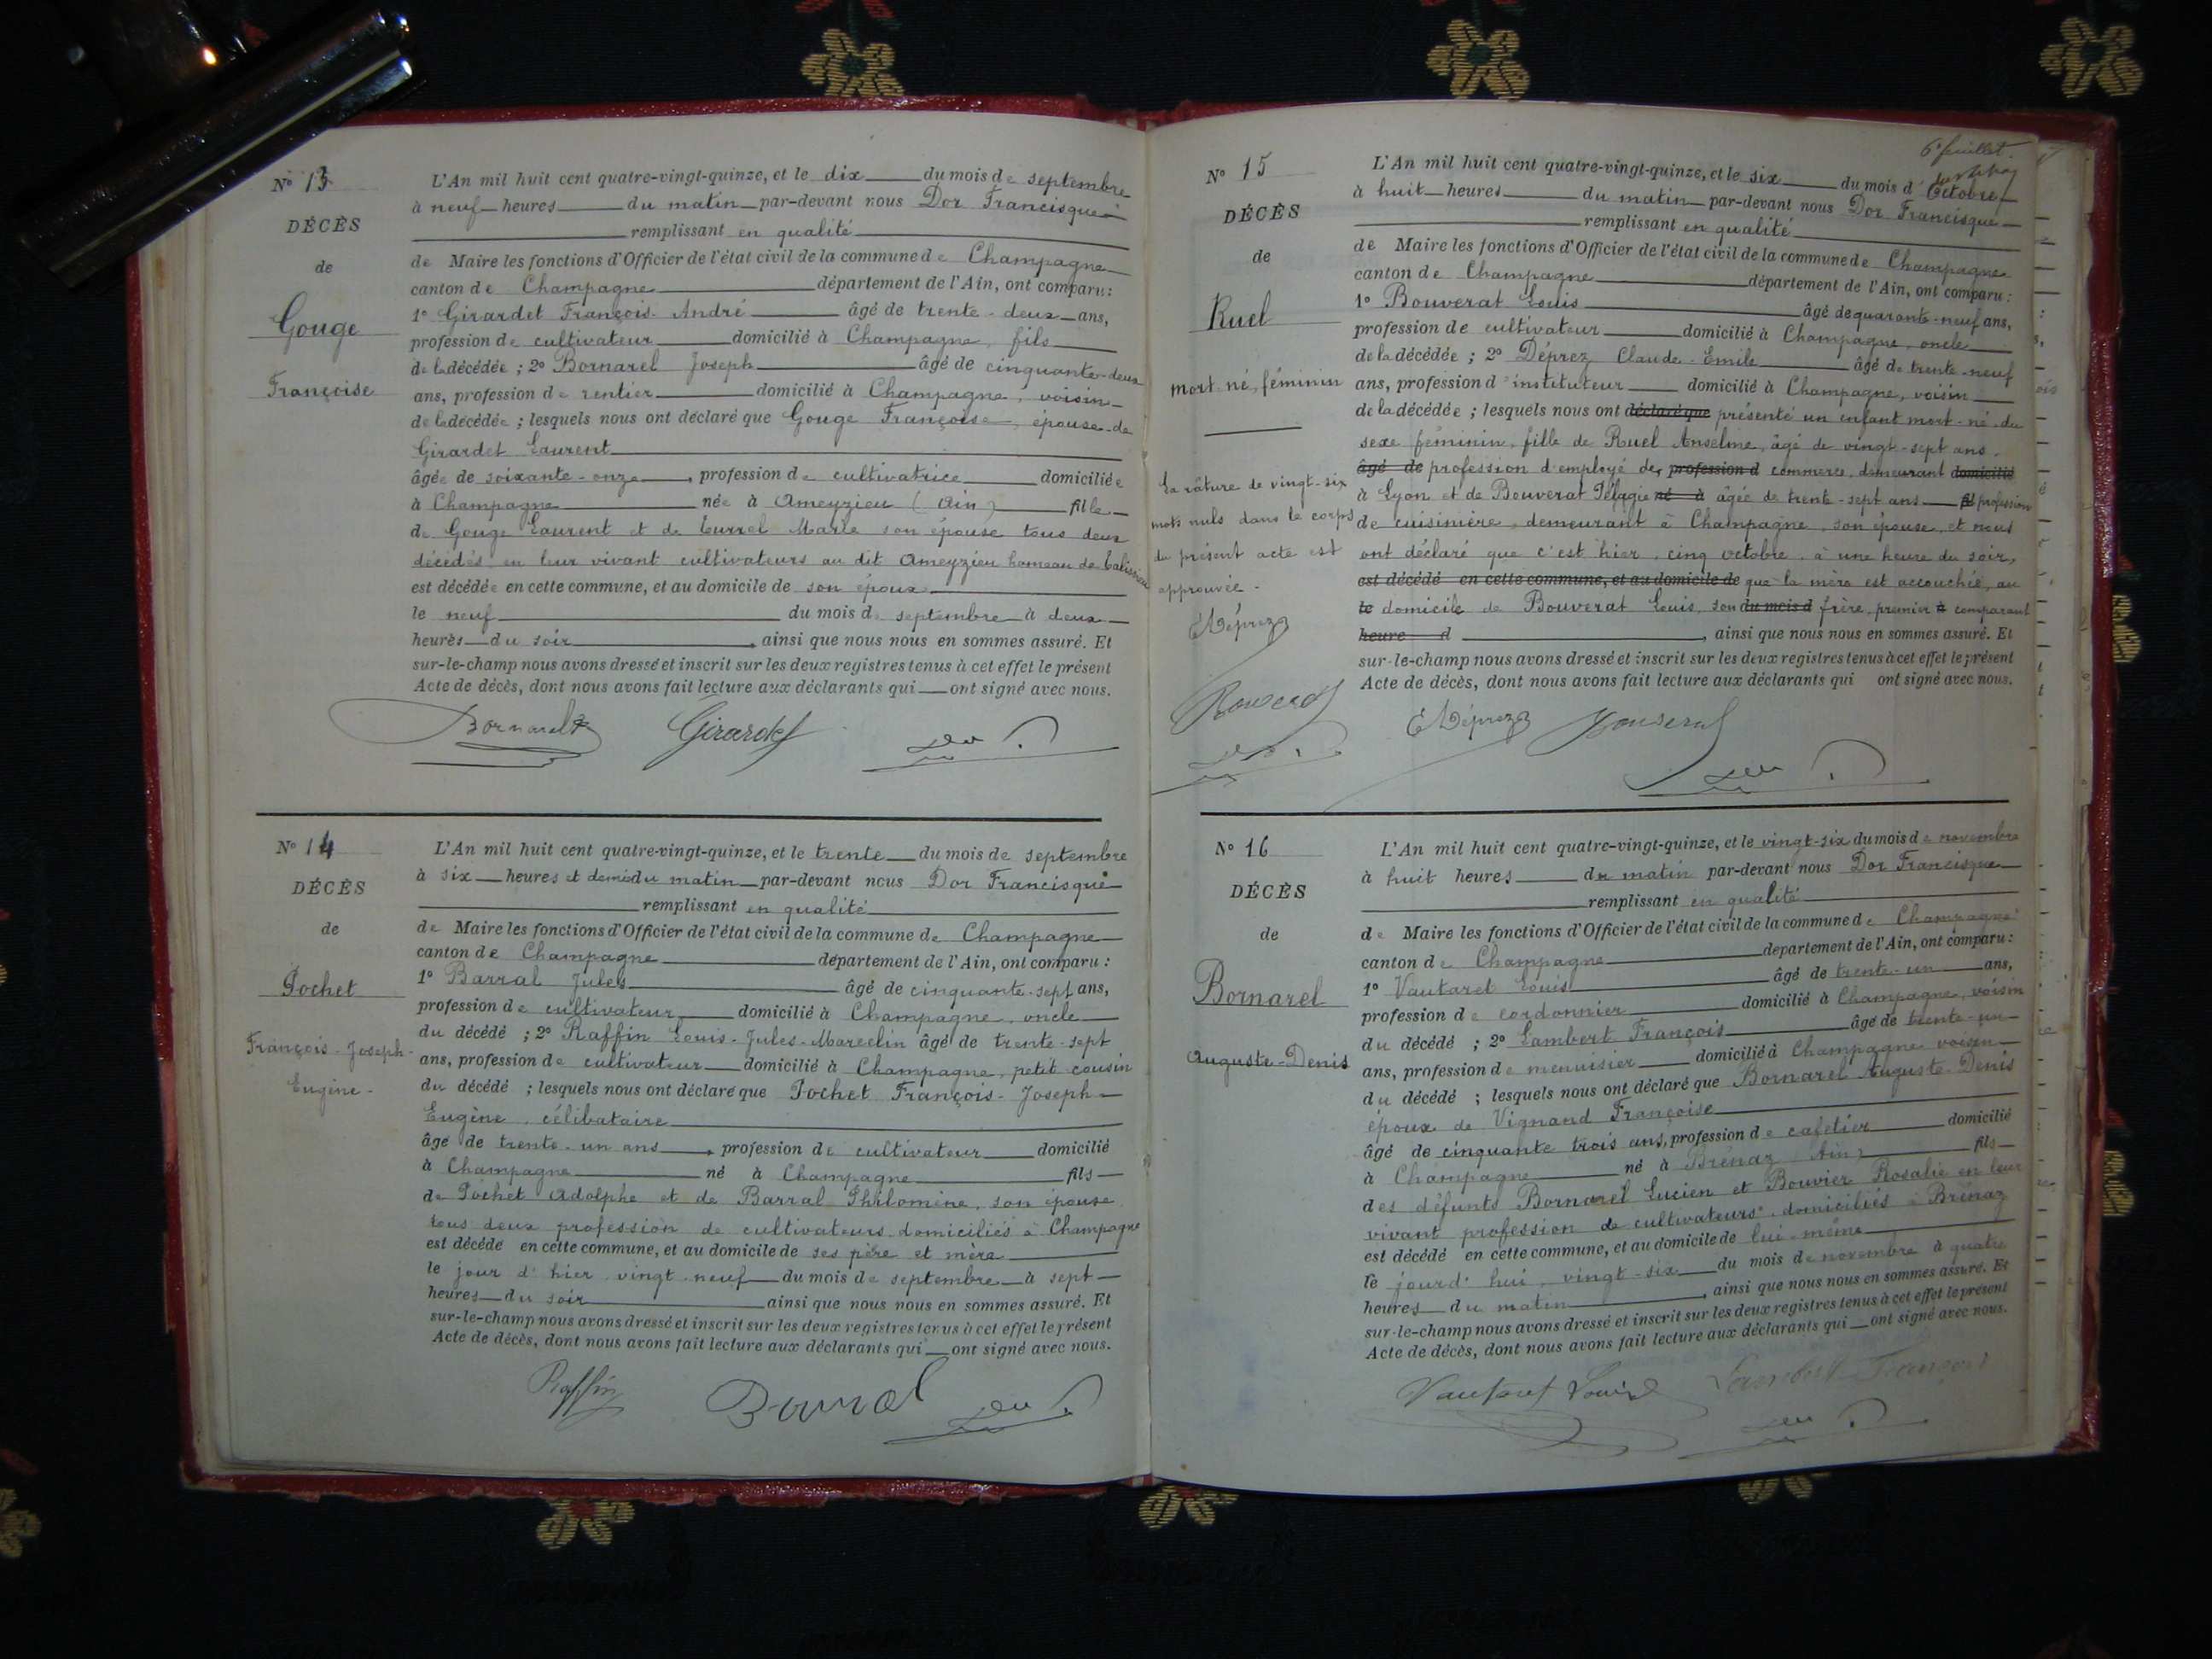 N° 13
DÉCÈS
de
Gouge
Françoise
L'An mil huit cent quatre-vingt-quinze, et le dix du mois de septembre
à neuf heures du matin par-devant nous Dor Francisque
remplissant en qualité
de Maire les fonctions d'Officier de l'état civil de la commune de Champagne
canton de Champagne département de l'Ain, ont comparu :
1° Girardet François-André âgé de trente-deux ans,
profession de cultivateur domicilié à Champagne, fils
de la décédée ; 2° Bornarel Joseph âgé de cinquante-deux
ans, profession de rentier domicilié à Champagne, voisin
de la décédée ; lesquels nous ont déclaré que Gouge Françoise, épouse de
Girardet Laurent
âgée de soixante-onze, profession de cultivatrice domiciliée
à Champagne née à Ameyzieu (Ain) fille
de Gouge Laurent et de Currel Marie son épouse tous deux
décédés en leur vivant cultivateurs au dit Ameyzieu hameau de Talissieu
est décédée en cette commune, et au domicile de son époux
le neuf du mois de septembre à deux
heures du soir, ainsi que nous nous en sommes assuré. Et
sur-le-champ nous avons dressé et inscrit sur les deux registres tenus à cet effet le présent
Acte de décès, dont nous avons fait lecture aux déclarants qui ont signé avec nous.
Bornarel Girardet Dor
N° 14
DÉCÈS
de
Pochet
François-Joseph-
Eugène-
L'An mil huit cent quatre-vingt-quinze, et le trente du mois de septembre
à six heures et demie du matin par-devant nous Dor Francisque
remplissant en qualité
de Maire les fonctions d'Officier de l'état civil de la commune de Champagne
canton de Champagne département de l'Ain, ont comparu :
1° Barral Jules âgé de cinquante-sept ans,
profession de cultivateur domicilié à Champagne, oncle
du décédé ; 2° Raffin Louis-Jules-Marcelin âgé de trente-sept
ans, profession de cultivateur domicilié à Champagne, petit cousin
du décédé ; lesquels nous ont déclaré que Pochet François-Joseph-
Eugène, célibataire
âgé de trente-un ans, profession de cultivateur domicilié
à Champagne né à Champagne fils
de Pochet Adolphe et de Barral Philomène, son épouse
tous deux profession de cultivateurs domiciliés à Champagne
est décédé en cette commune, et au domicile de ses père et mère
le jour d'hier vingt-neuf du mois de septembre à sept
heures du soir ainsi que nous nous en sommes assuré. Et
sur-le-champ nous avons dressé et inscrit sur les deux registres tenus à cet effet le présent
Acte de décès, dont nous avons fait lecture aux déclarants qui ont signé avec nous.
Raffin Barral Dor
6e feuillet.
N° 15
DÉCÈS
de
Ruel
mort-né, féminin
La râture de vingt-six
mots nuls dans le corps
du présent acte est
approuvée.
EDéprez
Bouverat
Dor
L'An mil huit cent quatre-vingt-quinze, et le six du mois d'Octobre
à huit heures du matin par-devant nous Dor Francisque
remplissant en qualité
de Maire les fonctions d'Officier de l'état civil de la commune de Champagne
canton de Champagne département de l'Ain, ont comparu :
1° Bouverat Louis âgé de quarante-neuf ans,
profession de cultivateur domicilié à Champagne, oncle
de la décédée ; 2° Déprez Claude-Emile âgé de trente-neuf
ans, profession d'instituteur domicilié à Champagne, voisin
de la décédée ; lesquels nous ont déclaré que présenté un enfant mort-né du
sexe féminin, fille de Ruel Anselme, âgé de vingt-sept ans,
âgé de profession d'employé de profession d commerce, demeurant domicilié
à Lyon et de Bouverat Pélagie né à âgée de trente-sept ans fil profession
de cuisinière, demeurant à Champagne, son épouse, et nous
ont déclaré que c'est hier, cinq octobre, à une heure du soir,
est décédé en cette commune, et au domicile de que la mère est accouchée, au
le domicile de Bouverat Louis, son du mois d frère, premier à comparant
heure d, ainsi que nous nous en sommes assuré. Et
sur-le-champ nous avons dressé et inscrit sur les deux registres tenus à cet effet le présent
Acte de décès, dont nous avons fait lecture aux déclarants qui ont signé avec nous.
EDéprez Bouverat
Dor
N° 16
DÉCÈS
de
Bornarel
Auguste-Denis
L'An mil huit cent quatre-vingt-quinze, et le vingt-six du mois de novembre
à huit heures du matin par-devant nous Dor Francisque
remplissant en qualité
de Maire les fonctions d'Officier de l'état civil de la commune de Champagne
canton de Champagne département de l'Ain, ont comparu :
1° Vautaret Louis âgé de trente-un ans,
profession de cordonnier domicilié à Champagne, voisin
du décédé ; 2° Lambert François âgé de trente-un
ans, profession de menuisier domicilié à Champagne voisin
du décédé ; lesquels nous ont déclaré que Bornarel Auguste-Denis
époux de Vignand Françoise
âgé de cinquante trois ans, profession de cafetier domicilié
à Champagne né à Brénaz (Ain) fils
des défunts Bornarel Lucien et Bouvier Rosalie en leur
vivant profession de cultivateurs, domiciliés à Brénaz
est décédé en cette commune, et au domicile de lui-même
le jourd'hui, vingt-six du mois de novembre à quatre
heures du matin, ainsi que nous nous en sommes assuré. Et
sur-le-champ nous avons dressé et inscrit sur les deux registres tenus à cet effet le présent
Acte de décès, dont nous avons fait lecture aux déclarants qui ont signé avec nous.
Vautaret Louis Lambert François
Dor